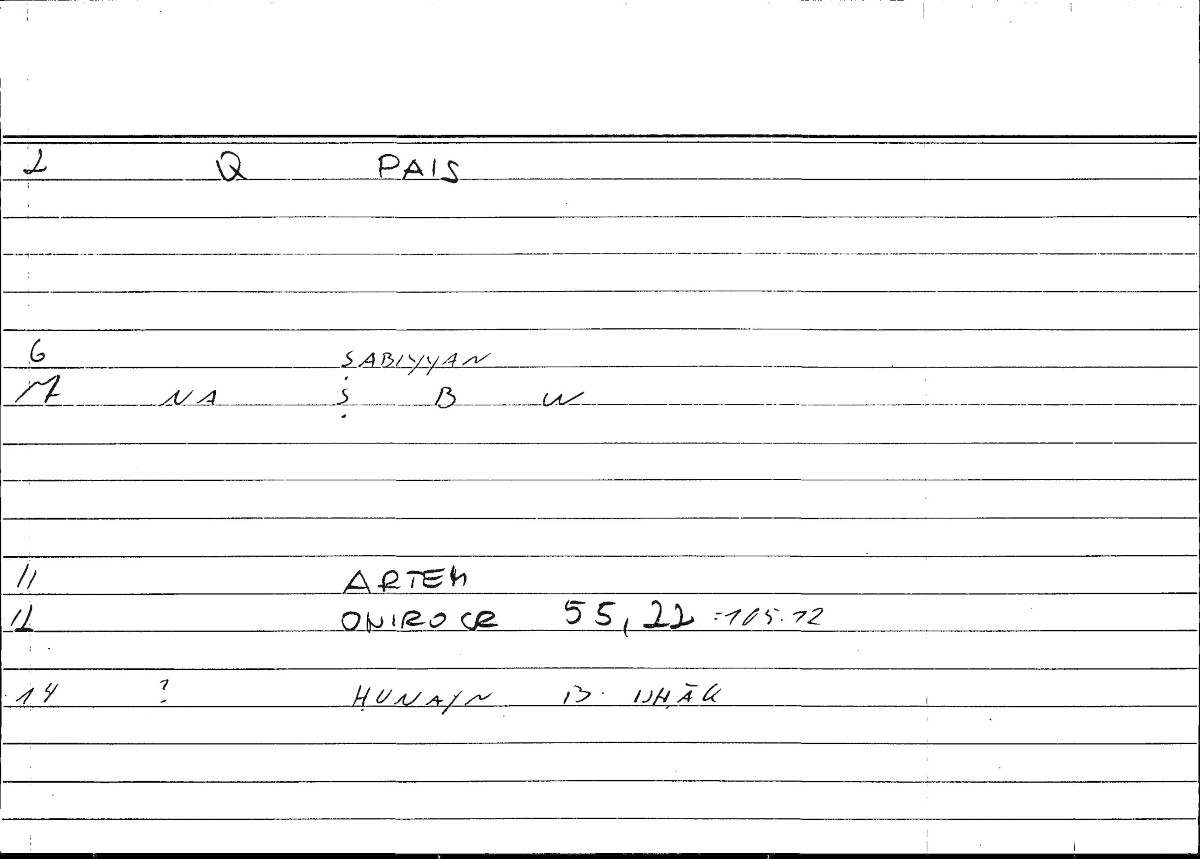 2 Q PAIS
6 ṢABIYYAN
7 NA Ṣ B W
11 ARTEM
12 ONIROCR 55,22 =105.12
14 ? ḤUNAYN B. ISḤĀK